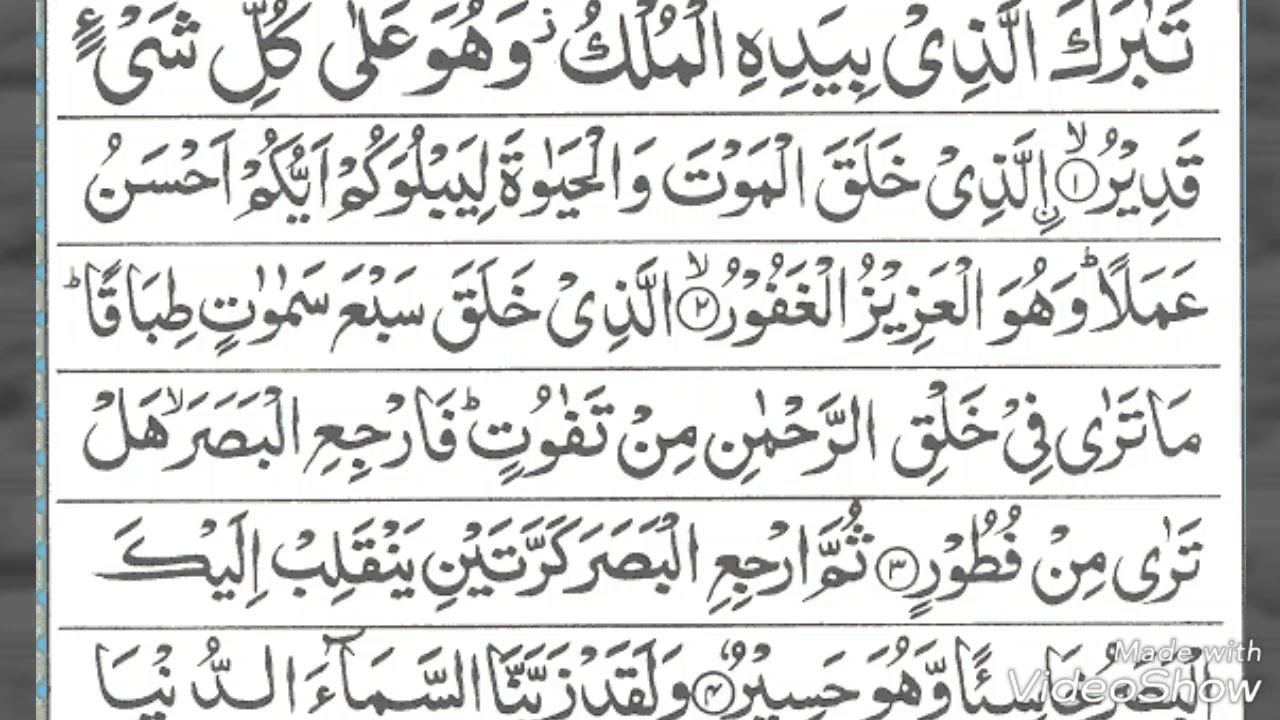 تَبٰرَكَ الَّذِیْ بِیَدِهِ الْمُلْكُ ؗ وَهُوَ عَلٰی كُلِّ شَیْءٍ
قَدِیْرُ ۙ﴿۱﴾ اِ۟لَّذِیْ خَلَقَ الْمَوْتَ وَالْحَیٰوةَ لِیَبْلُوَكُمْ اَیُّكُمْ اَحْسَنُ
عَمَلًا ؕ وَهُوَ الْعَزِیْزُ الْغَفُوْرُ ۙ﴿۲﴾ الَّذِیْ خَلَقَ سَبْعَ سَمٰوٰتٍ طِبَاقًا ؕ
مَا تَرٰی فِیْ خَلْقِ الرَّحْمٰنِ مِنْ تَفٰوُتٍ ؕ فَارْجِعِ الْبَصَرَ ۙ هَلْ
تَرٰی مِنْ فُطُوْرٍ ﴿۳﴾ ثُمَّ ارْجِعِ الْبَصَرَ كَرَّتَیْنِ یَنْقَلِبْ اِلَیْكَ
الْبَصَرُ خَاسِئًا وَّهُوَ حَسِیْرٌ ﴿۴﴾ وَلَقَدْ زَیَّنَّا السَّمَآءَ الدُّنْیَا
Made with
VideoShow